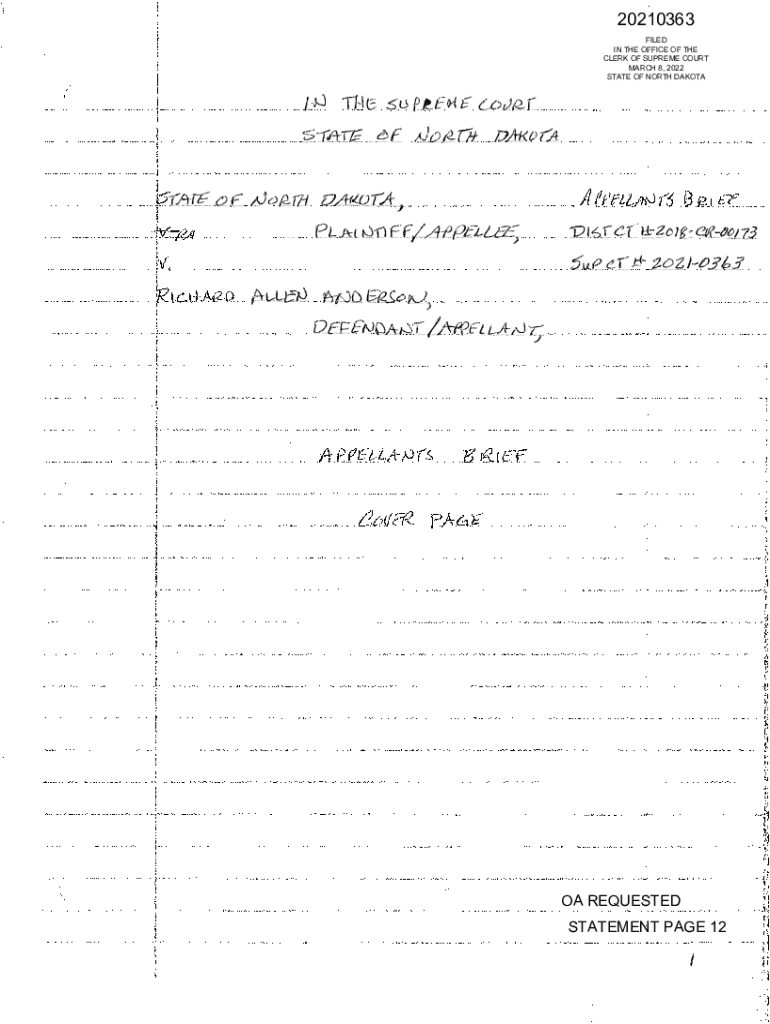 20210363
FILED
IN THE OFFICE OF THE
CLERK OF SUPREME COURT
MARCH 8, 2022
STATE OF NORTH DAKOTA
IN THE SUPREME COURT
STATE OF NORTH DAKOTA
STATE OF NORTH DAKOTA, APPELLANTS BRIEF
PLAINTIFF/APPELLEE, DIST CT # 2018-CR-00173
V. SUP CT # 2021-0363
RICHARD ALLEN ANDERSON,
DEFENDANT/APPELLANT,
APPELLANTS BRIEF
COVER PAGE
OA REQUESTED
STATEMENT PAGE 12
1